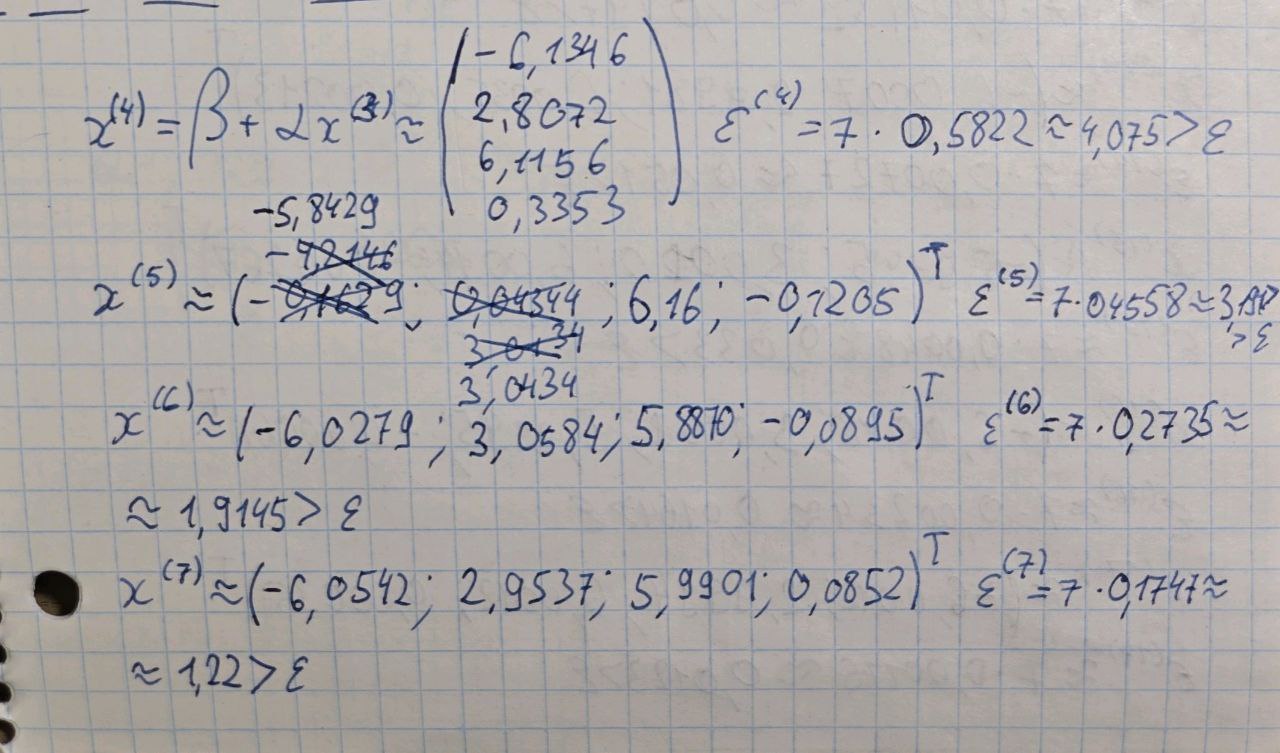 x⁽⁴⁾ = β + αx⁽³⁾ ≈ (−6,1346
2,8072
6,1156
0,3353) ε⁽⁴⁾ = 7 · 0,5822 ≈ 4,075 > ε
−5,8429
x⁽⁵⁾ ≈ (− ; ; 6,16; −0,1205)ᵀ ε⁽⁵⁾ = 7 · 04558 ≈
> ε
3,0434
x⁽⁶⁾ ≈ (−6,0279; 3,0584; 5,8870; −0,0895)ᵀ ε⁽⁶⁾ = 7 · 0,2735 ≈
≈ 1,9145 > ε
x⁽⁷⁾ ≈ (−6,0542; 2,9537; 5,9901; 0,0852)ᵀ ε⁽⁷⁾ = 7 · 0,1747 ≈
≈ 1,22 > ε